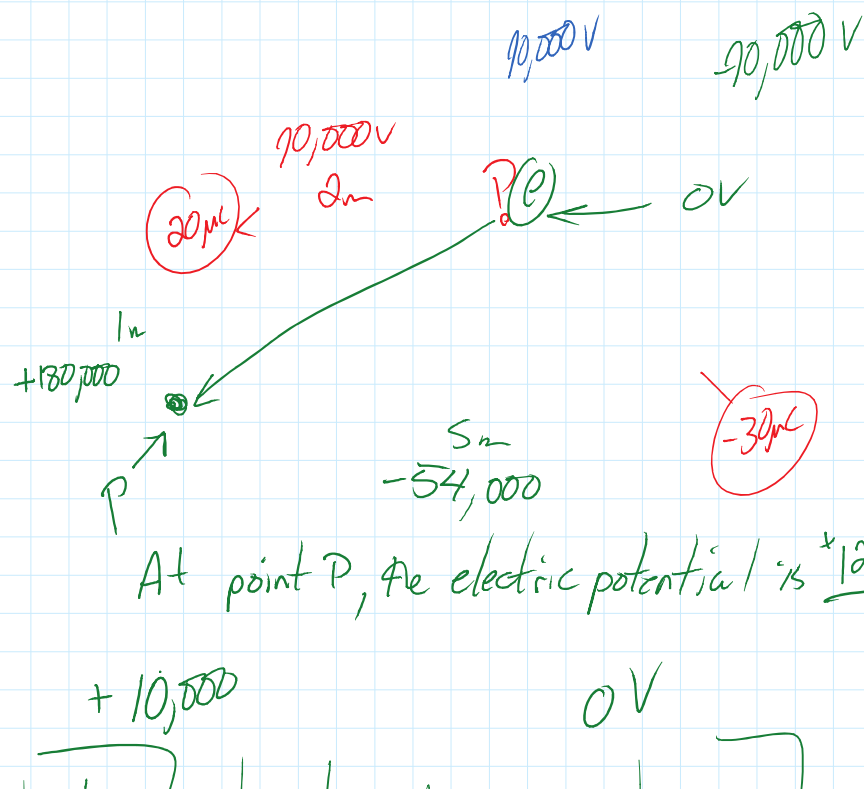 90,000 V
-90,000 V
90,000 V
2m
20 μC
P
e
0V
1m
+180,000
-30 μC
5m
-54,000
P
At point P, the electric potential is +12
+ 10,000
0 V